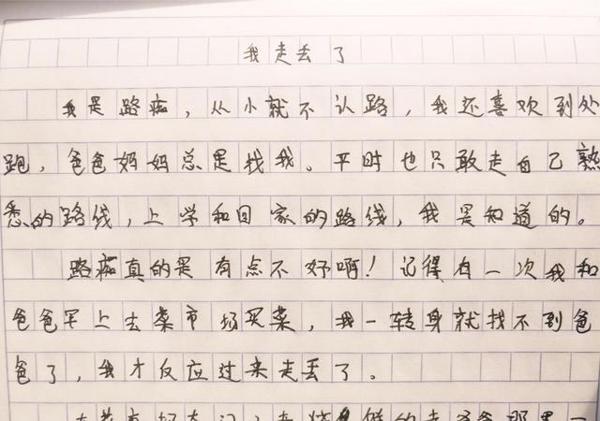 我走丢了
我是路痴，从小就不认路，我还喜欢到处
跑，爸爸妈妈总是找我。平时也只敢走自己熟
悉的路线，上学和回家的路线，我是知道的。
路痴真的是有点不好啊！记得有一次我和
爸爸早上去菜市场买菜，我一转身就找不到爸
爸了，我才反应过来走丢了。